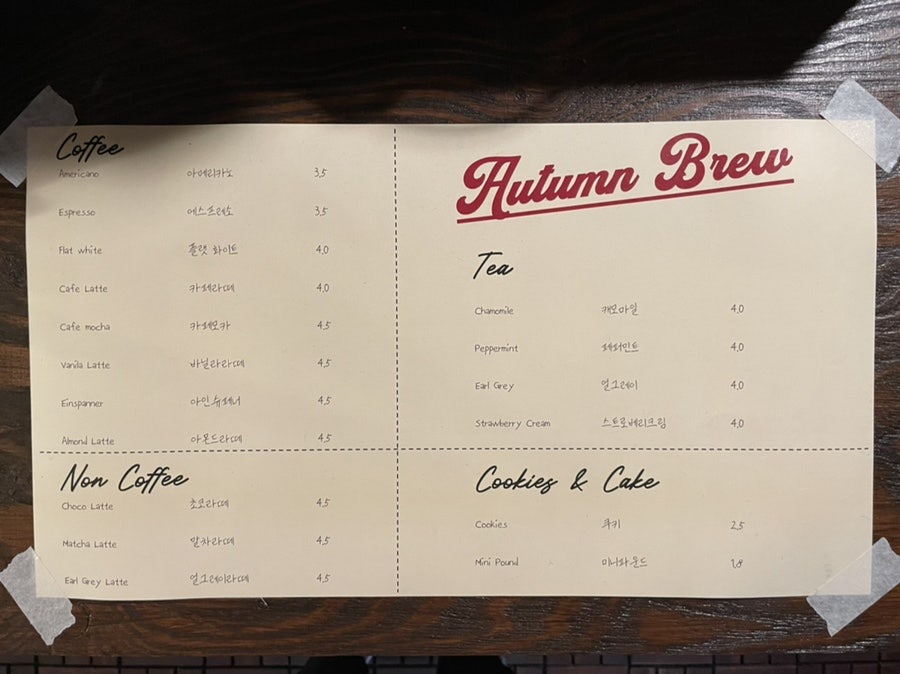 Coffee
Americano 아메리카노 3.5
Espresso 에스프레소 3.5
Flat white 플랫 화이트 4.0
Cafe Latte 카페라떼 4.0
Cafe mocha 카페모카 4.5
Vanila Latte 바닐라라떼 4.5
Einspanner 아인슈페너 4.5
Almond Latte 아몬드라떼 4.5
Non Coffee
Choco Latte 초코라떼 4.5
Matcha Latte 말차라떼 4.5
Earl Grey Latte 얼그레이라떼 4.5
Autumn Brew
Tea
Chamomile 캐모마일 4.0
Peppermint 페퍼민트 4.0
Earl Grey 얼그레이 4.0
Strawberry Cream 스트로베리크림 4.0
Cookies & Cake
Cookies 쿠키 2.5
Mini Pound 미니파운드 1.8